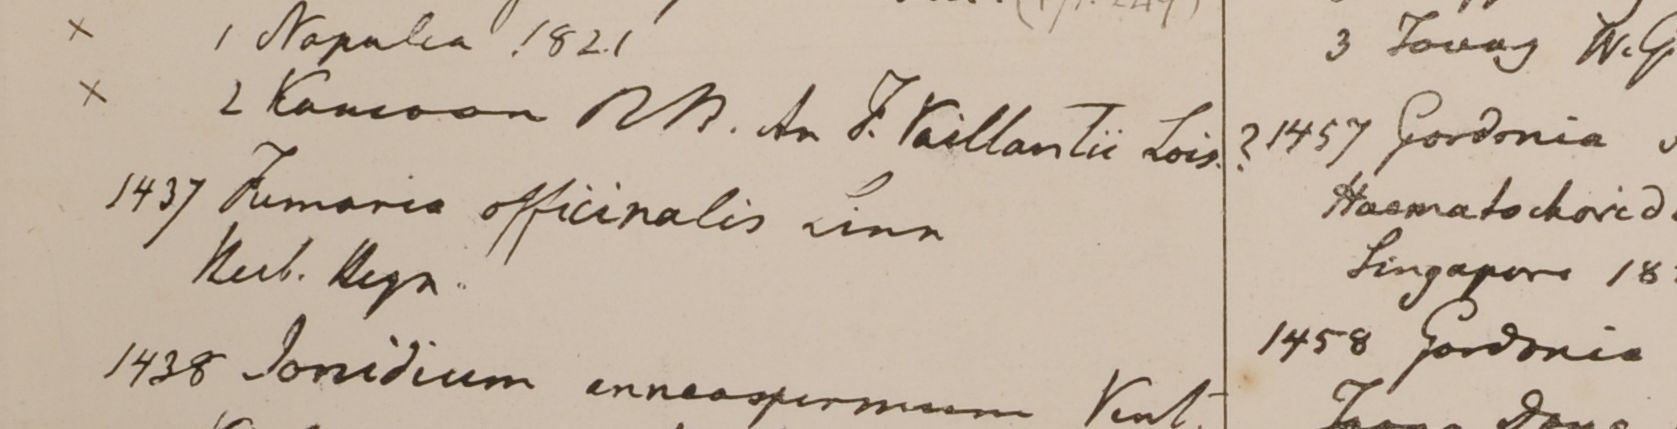 × 1 Napalia 1821
× 2 Kamoon RB. An F. Vaillantii Lois. ?
1437 Fumaria officinalis Linn
Herb. Heyn.
1438 Ionidium enneaspermum Vent.
3 Tavoy W.G
1457 Gordonia
Haematochorid
Singapore 18
1458 Gordonia
Taong Dong